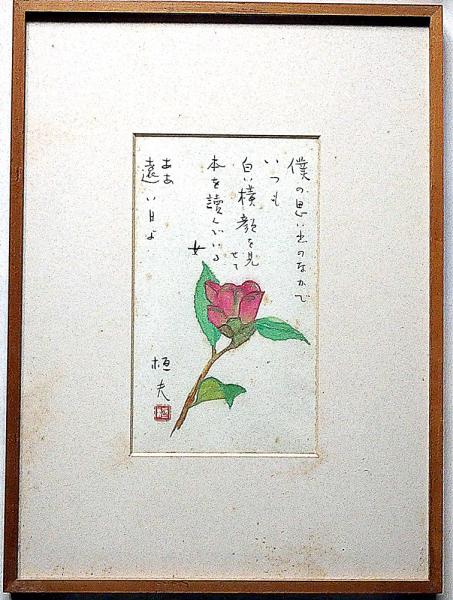 僕の思い出のなかで
いつも
白い横顔を見せて
本を讀んでいる
女
ああ
遠い日よ
桓夫